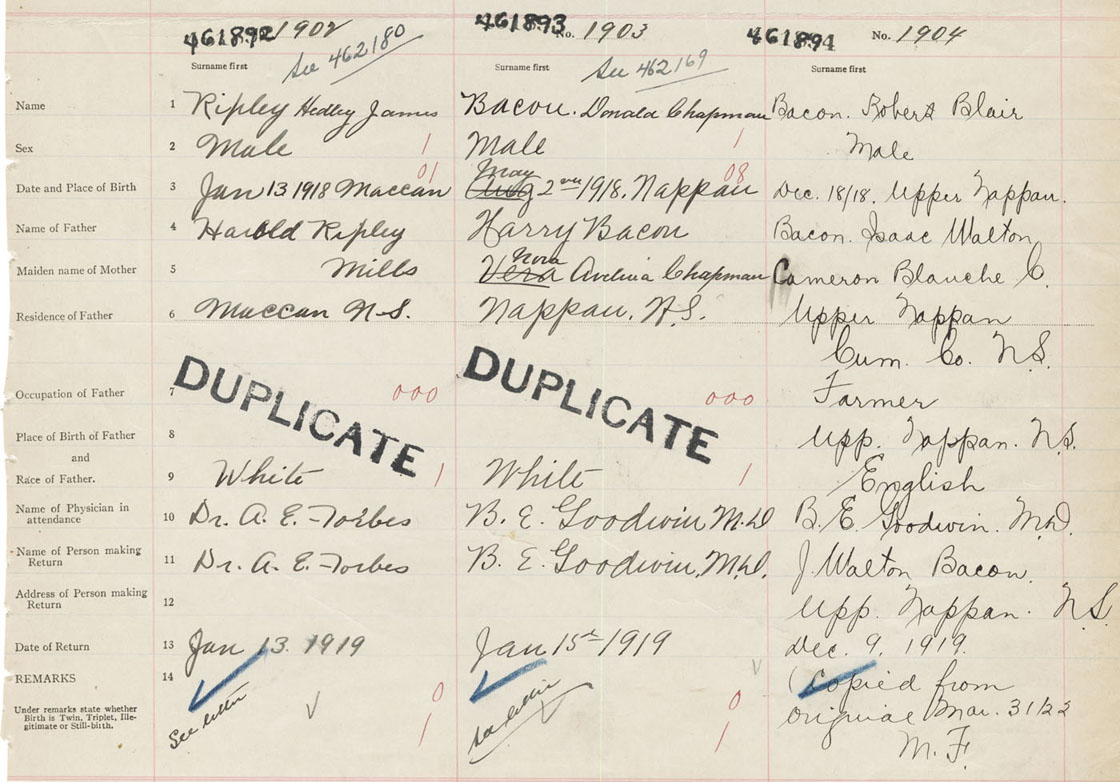 461892 1902
461893 No. 1903
461894 No. 1904
See 462180
See 462169
Surname first
Surname first
Surname first
Name 1 Ripley Hedley James
Bacon. Donald Chapman
Bacon. Robert Blair
Sex 2 Male 1
Male 1
Male
01
May
08
Date and Place of Birth 3 Jan 13 1918 Maccan
Aug 2nd 1918. Nappan
Dec. 18/18. Upper Nappan.
Name of Father 4 Harold Ripley
Harry Bacon
Bacon. Isaac Walton
Nora
Maiden name of Mother 5 Mills
Vera Avelina Chapman
Cameron Blanche C.
Residence of Father 6 Maccan N.S.
Nappan, N.S.
Upper Nappan
Cum. Co. N.S.
DUPLICATE
DUPLICATE
Occupation of Father 7 000
000
Farmer
Place of Birth of Father 8
Upp. Nappan. N.S.
and
Race of Father. 9 White 1
White 1
English
Name of Physician in
attendance 10 Dr. A. E. Forbes
B. E. Goodwin M.D
B. E. Goodwin. M.D.
Name of Person making
Return 11 Dr. A. E. Forbes
B. E. Goodwin, M.D.
J Walton Bacon.
Address of Person making
Return 12
Upp. Nappan. N.S.
Date of Return 13 Jan 13. 1919
Jan 15th 1919
Dec. 9. 1919.
REMARKS 14
(Copied from
Under remarks state whether
Birth is Twin, Triplet, Ille-
gitimate or Still-birth.
See letter
0
1
See letter
0
1
original Mar. 31/22
M. F.